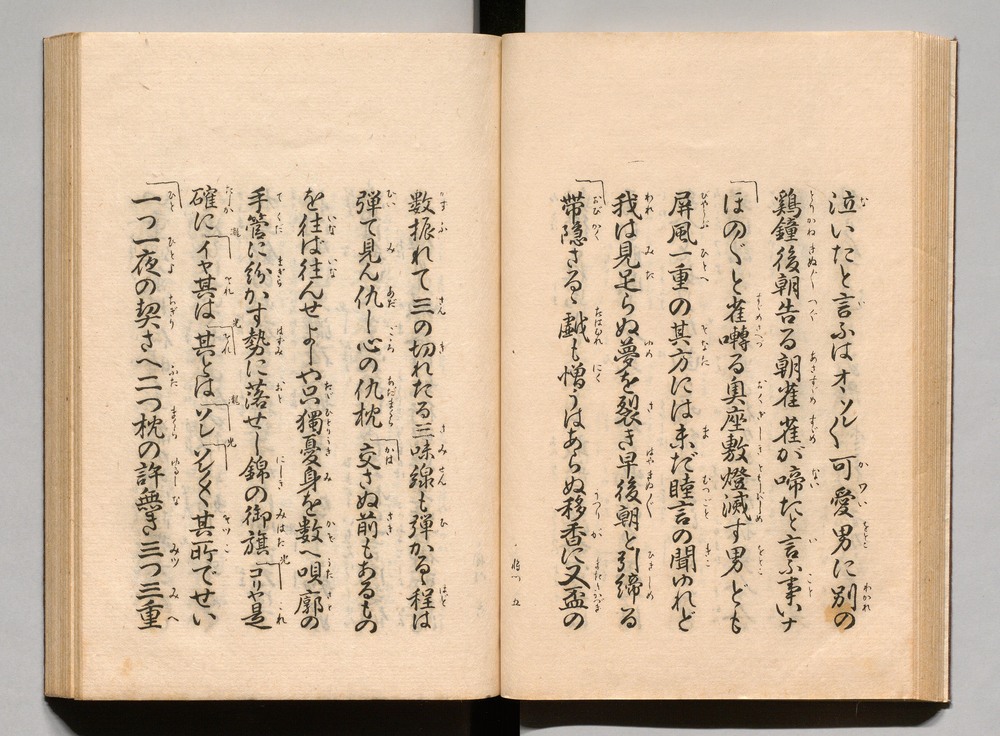 泣いたと言ふはオヽソレ〳〵可愛男に別の
鶏鐘後朝告る朝雀雀が啼たと言ふ事いナ
ほの〴〵と雀囀る奥座敷燈滅す男ども
屏風一重の其方には未だ睦言の聞ゆれど
我は見足らぬ夢を裂き早後朝と引締る
帯隠さるゝ戯も憎うはあらぬ移香に又盃の
数振れて三の切れたる三味線も弾かるゝ程は
弾て見ん仇し心の仇枕 交さぬ前もあるもの
を往ば往んせよしや只獨憂身を数へ唄廓の
手管に紛かす勢に落せし錦の御旗 コリヤ是
確に イヤ其は 其とは ソレ ソレ〳〵其所でせい
一つ一夜の契さへ二つ枕の許無き三つ三重